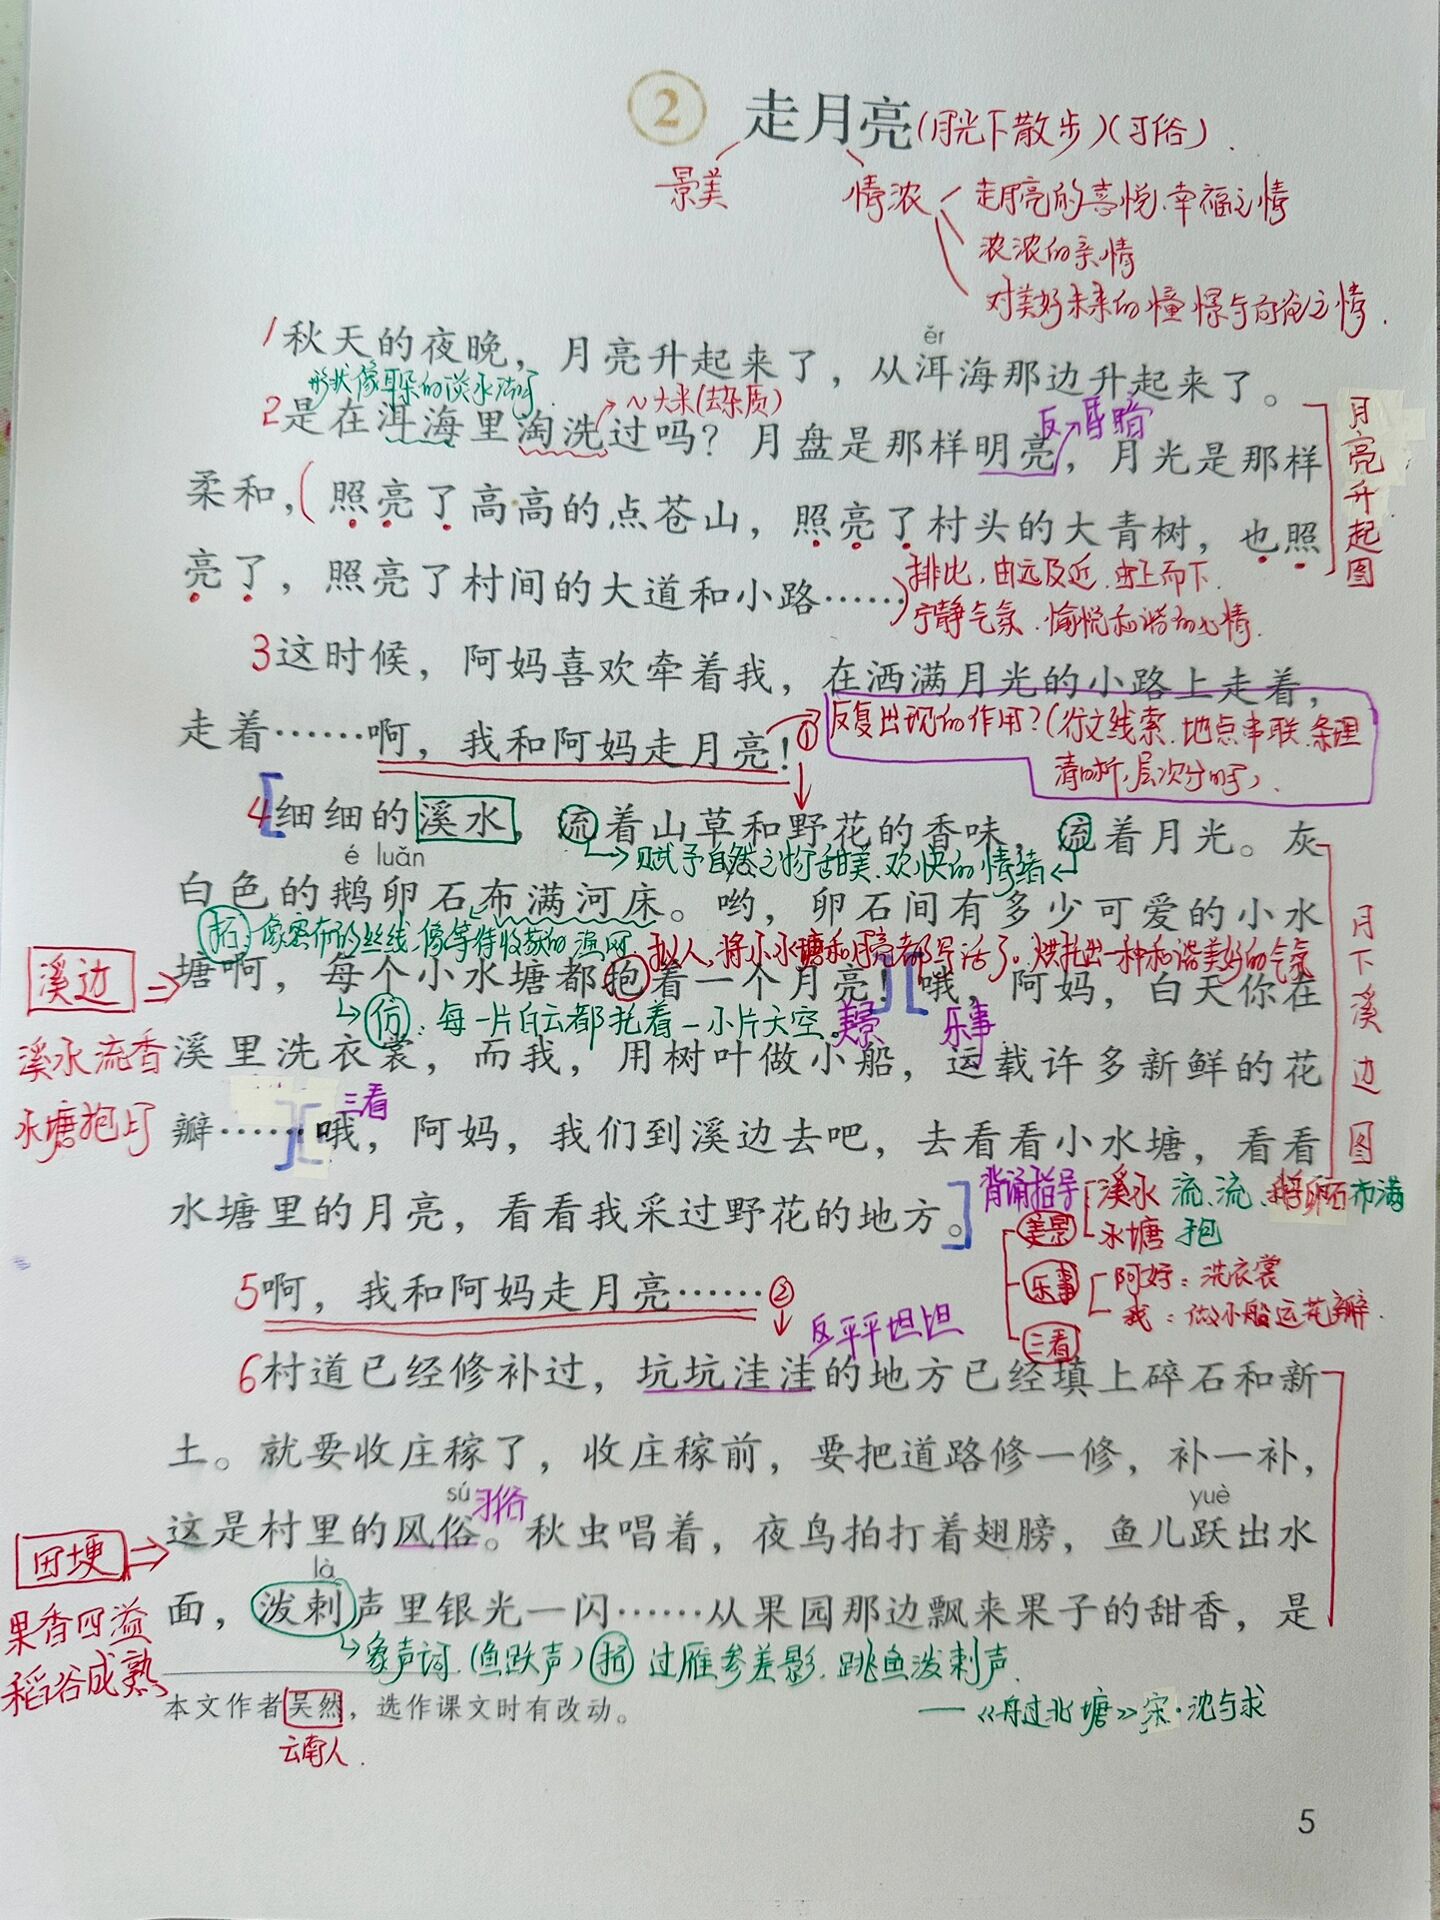 ② 走月亮(月光下散步)(习俗).
景美 情浓 走月亮的喜悦、幸福之情
浓浓的亲情
对美好未来的憧憬与向往之情.
ěr
1秋天的夜晚，月亮升起来了，从洱海那边升起来了。
形状像耳朵的淡水湖泊 ～大米(去杂质) 反 昏暗
2是在洱海里淘洗过吗？月盘是那样明亮，月光是那样
柔和，(照亮了高高的点苍山，照亮了村头的大青树，也照
亮了，照亮了村间的大道和小路……)
排比，由远及近，由上而下.
宁静气氛.愉悦和谐的心情.
月亮升起图
3这时候，阿妈喜欢牵着我，在洒满月光的小路上走着，
走着……啊，我和阿妈走月亮！①
反复出现的作用?(行文线索.地点串联.条理
清晰，层次分明).
4细细的溪水，流着山草和野花的香味，流着月光。灰
é luǎn
赋予自然之物甜美.欢快的情绪
白色的鹅卵石布满河床。哟，卵石间有多少可爱的小水
拓:像密布的丝线.像等待收获的渔网. 拟人，将小水塘和月亮都写活了.烘托出一种和谐美好的气氛
塘啊，每个小水塘都抱着一个月亮！哦，阿妈，白天你在
仿:每一片白云都托着一小片天空. 美景 乐事
溪里洗衣裳，而我，用树叶做小船，运载许多新鲜的花
三看
瓣……哦，阿妈，我们到溪边去吧，去看看小水塘，看看
水塘里的月亮，看看我采过野花的地方。
溪边
溪水流香
水塘抱月
月下溪边图
背诵指导
美景 溪水 流、流、 卵石布满
水塘 抱
乐事 阿妈:洗衣裳
我:做小船运花瓣.
三看
5啊，我和阿妈走月亮……②
反平平坦坦
6村道已经修补过，坑坑洼洼的地方已经填上碎石和新
土。就要收庄稼了，收庄稼前，要把道路修一修，补一补，
sú 习俗 yuè
这是村里的风俗。秋虫唱着，夜鸟拍打着翅膀，鱼儿跃出水
là
面，泼剌声里银光一闪……从果园那边飘来果子的甜香，是
象声词.(鱼跃声)拓 过雁参差影.跳鱼泼剌声.
——《舟过北塘》宋·沈与求
田埂
果香四溢
稻谷成熟
本文作者吴然，选作课文时有改动。
云南人.
5